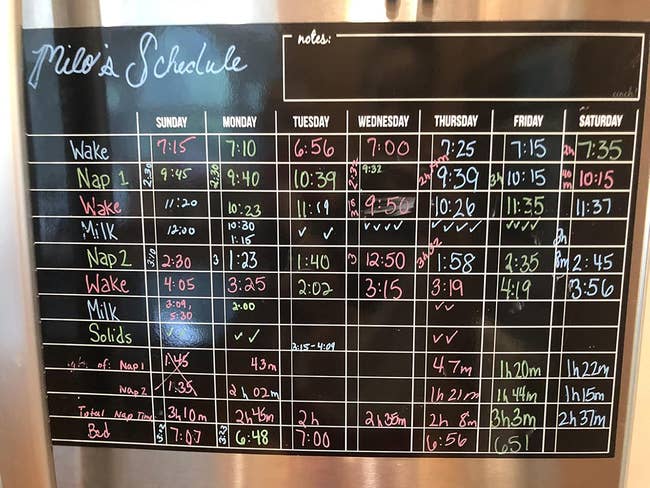 Milo's Schedule
notes:
cinch!
SUNDAY MONDAY TUESDAY WEDNESDAY THURSDAY FRIDAY SATURDAY
Wake 7:15 7:10 6:56 7:00 7:25 7:15 2h 7:35
Nap 1 2:30 9:45 2:30 9:40 10:39 2:32 9:32 9:39 3h 10:15 10:15
Wake 11:20 10:23 11:19 9:50 10:26 11:35 11:37
Milk 12:00 10:30 ✓ ✓ ✓✓✓✓ ✓✓✓✓ ✓✓✓✓
1:15
Nap 2 3:10 2:30 3 1:23 1:40 3 12:50 1:58 2:35 2:45
Wake 4:05 3:25 2:02 3:15 3:19 4:19 3:56
Milk 3:09, 2:00 ✓✓
5:30
Solids ✓ ✓✓ 3:15-4:09 ✓✓
of: Nap 1 1:45 43m 47m 1h20m 1h22m
Nap 2 1:35 2h 02m 1h 21m 1h 44m 1h15m
Total Nap Time 3h10m 2h45m 2h 2h35m 2h 8m 3h3m 2h37m
Bed 7:07 3:23 6:48 7:00 6:56 651